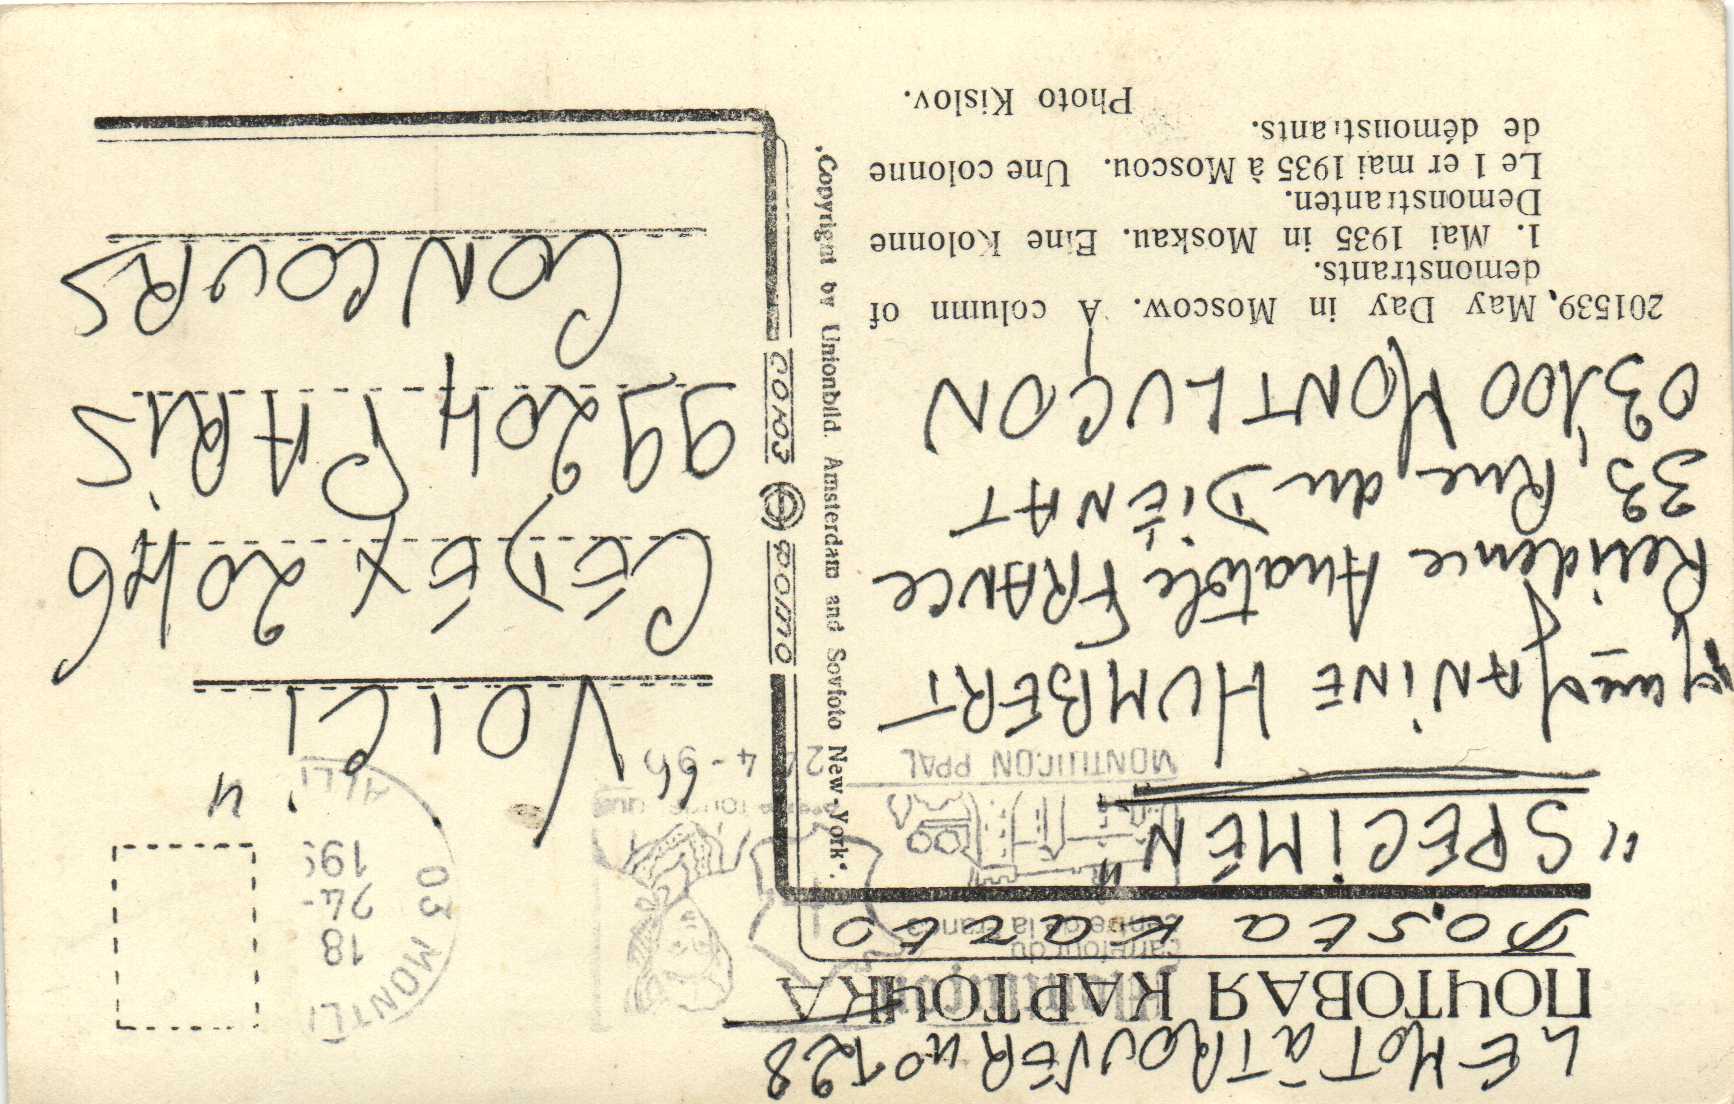 LE MOT à TROUVER n° 128
ПОЧТОВАЯ КАРТОЧКА
Poŝta karto
carrefour du
centre de la France
MONTLUCON PPAL
"SPECIMEN"
JANINE HUMBERT
Résidence Anatole FRANCE
33, Rue du DIÉNAT
03100 MONTLUÇON
201539. May Day in Moscow. A column of
demonstrants.
1. Mai 1935 in Moskau. Eine Kolonne
Demonstranten.
Le 1 er mai 1935 à Moscou. Une colonne
de démonstrants.
Photo Kislov.
„Copyright by Unionbild. Amsterdam and Sovfoto New-York“.
союз фото
03 MONTL
18
24-
199
"VOICI"
CEDEX 20446
99204 PARIS
CONCOURS